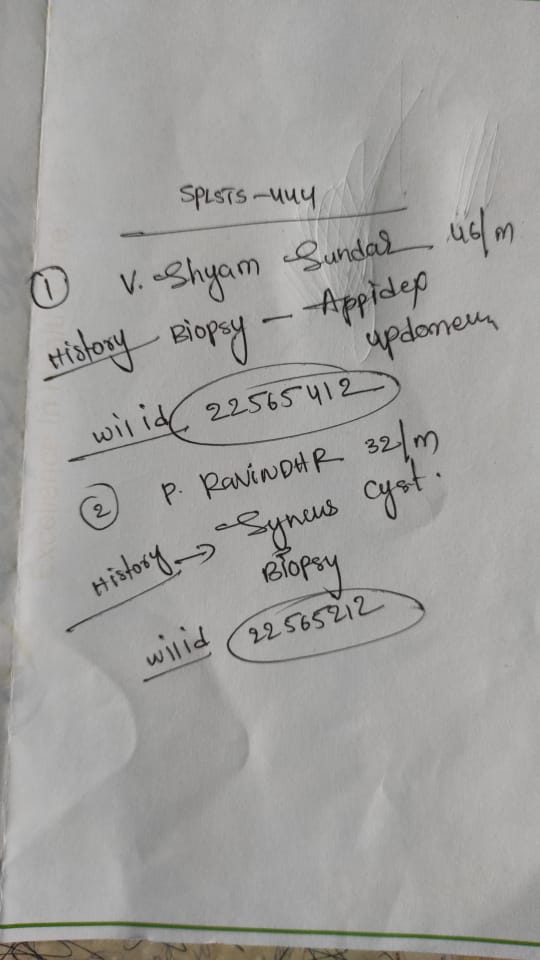 SPLSTS-444
① V. Shyam Sundar 46/m
History Biopsy - Appidep
updomeun
wil id 22565412
② P. RAVINDHR 32/m
History → Syneus cyst.
Biopsy
wil id 22565212